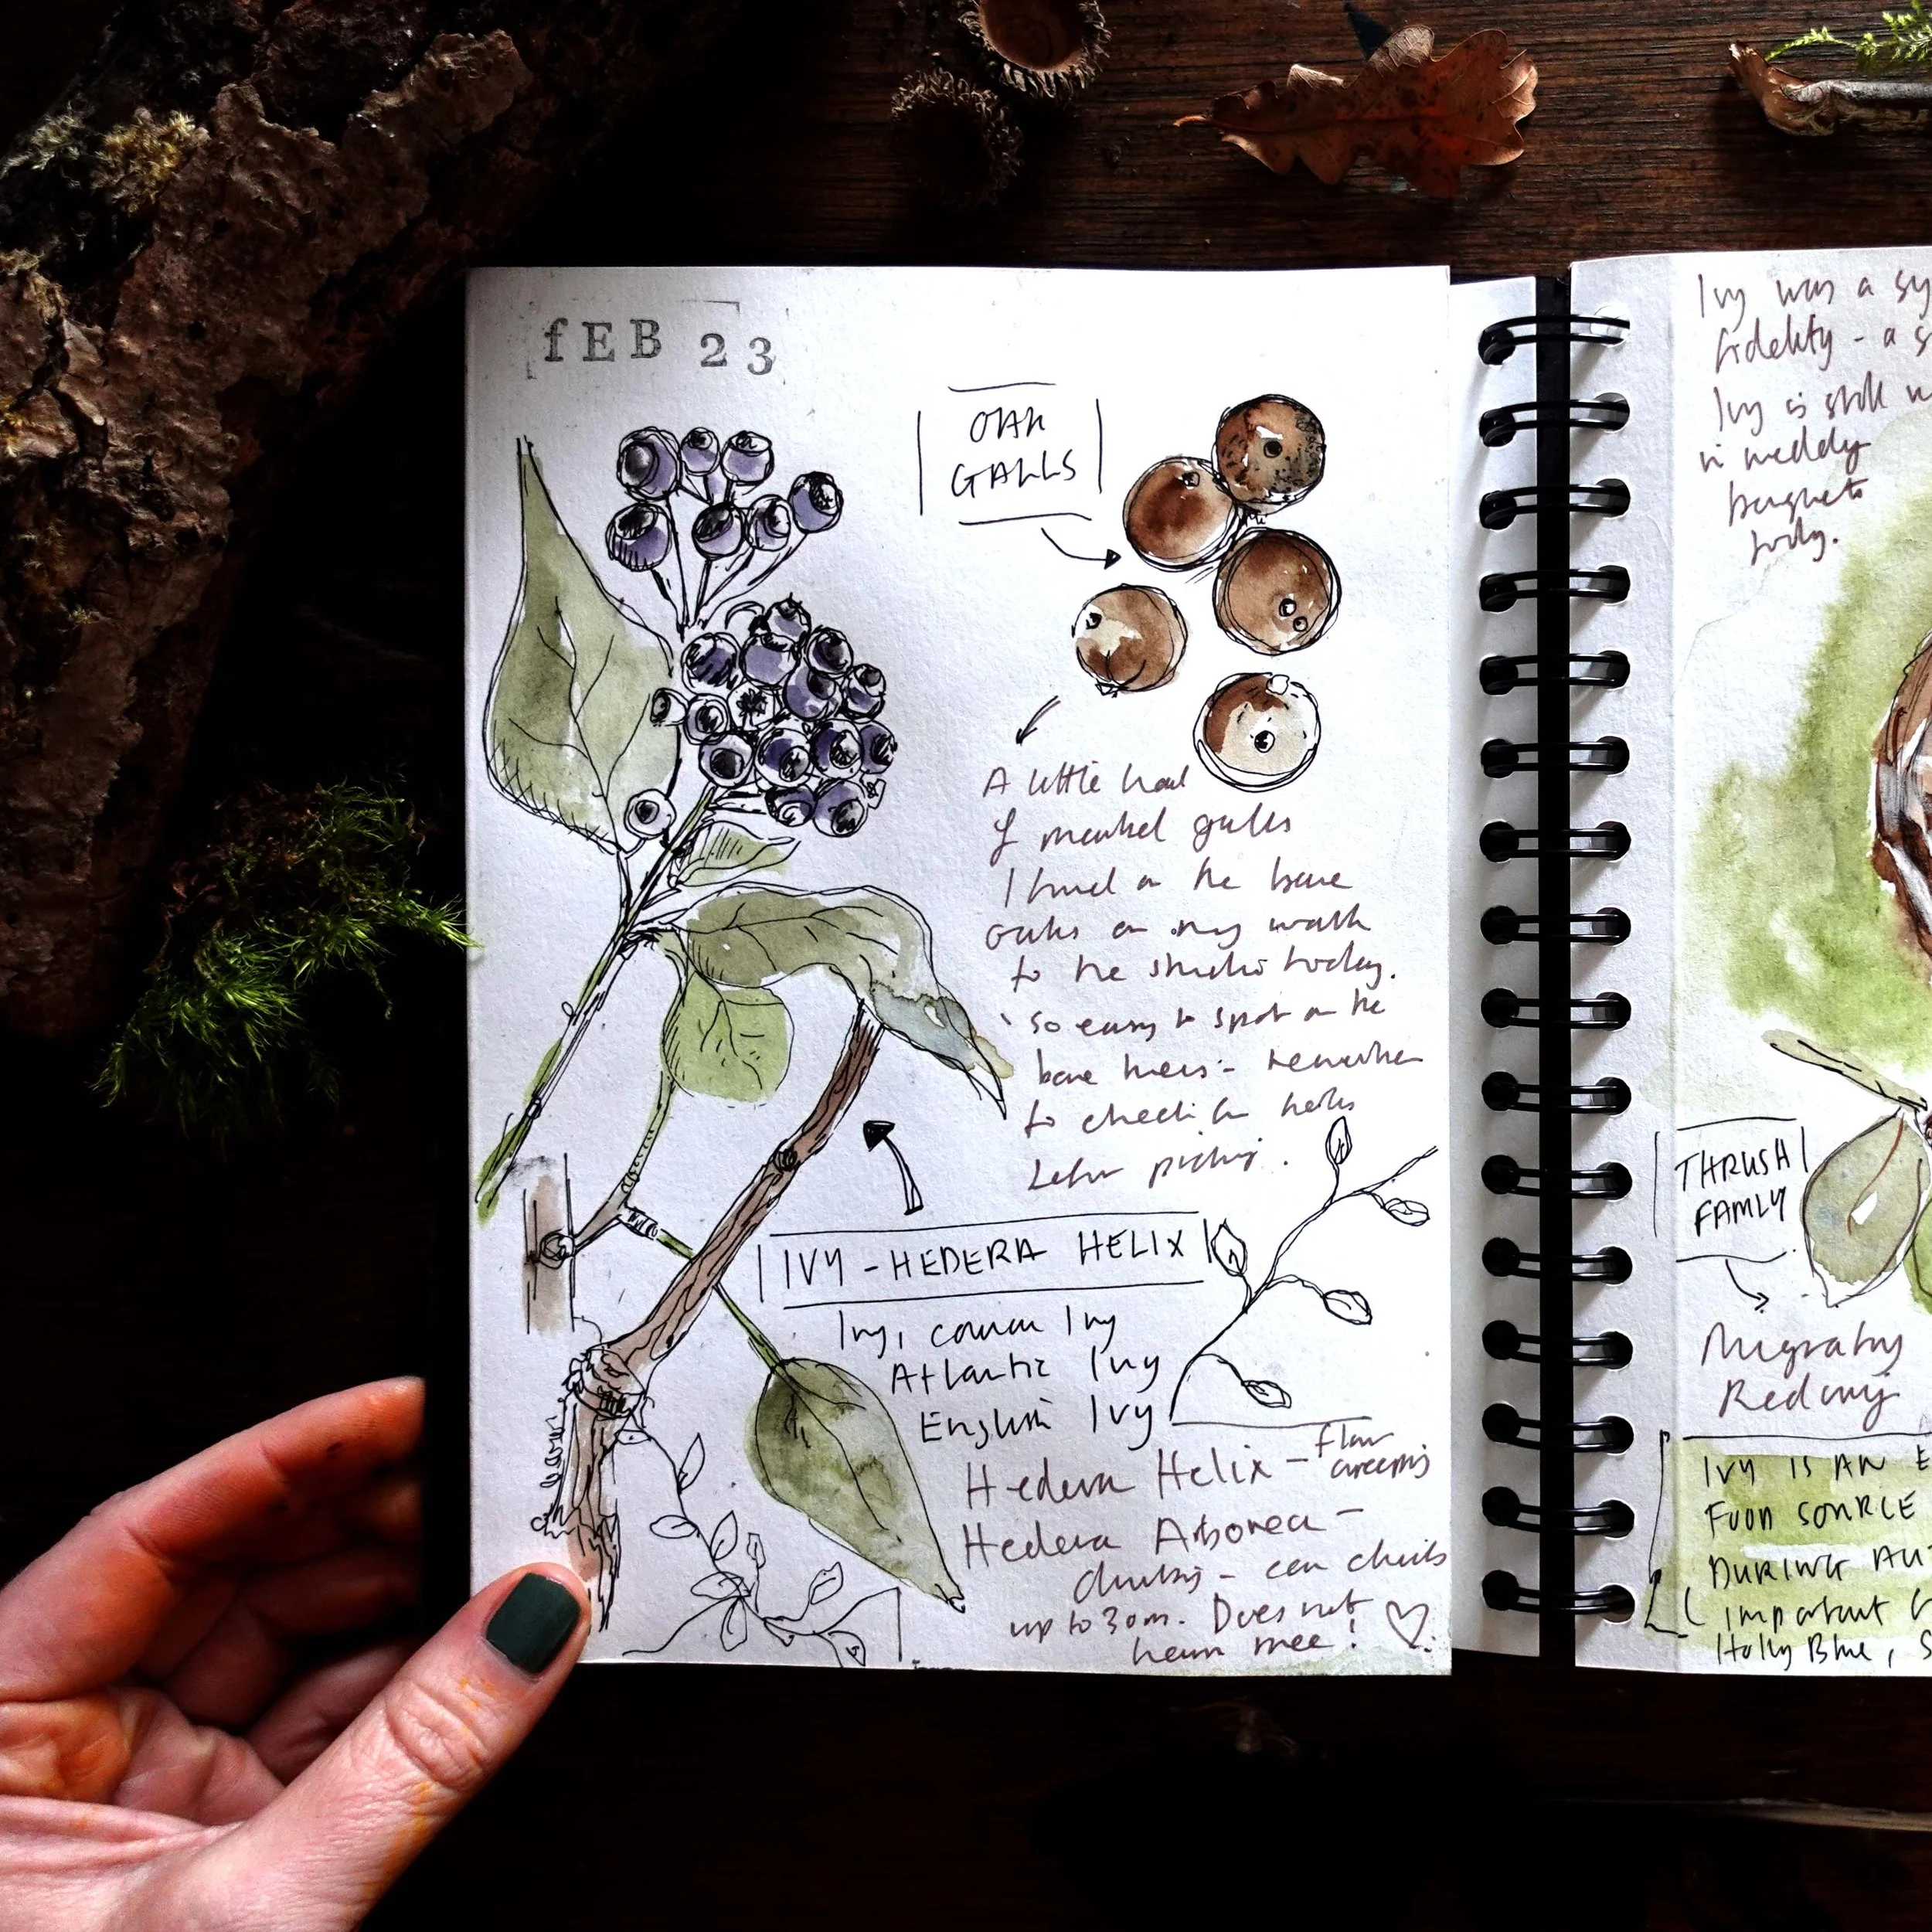 fEB 23
OAK
GALLS
A little haul
of marbel galls
I found on the bare
oaks on my walk
to the studio today.
so easy to spot on the
bare trees - remember
to check for holes
before picking.
IVY - HEDERA HELIX
Ivy, common Ivy
Atlantic Ivy
English Ivy
Hedera Helix - floor
creeping
Hedera Arborea -
climbing - can climb
up to 30m. Does not
harm tree! ♡
Ivy was a sy
fidelity - a s
Ivy is still
in wedding
bouquets
today.
THRUSH
FAMLY
Migratory
Redwing
IVY IS AN E
FOOD SOURCE
DURING AUT
Important
Holly Blue, S